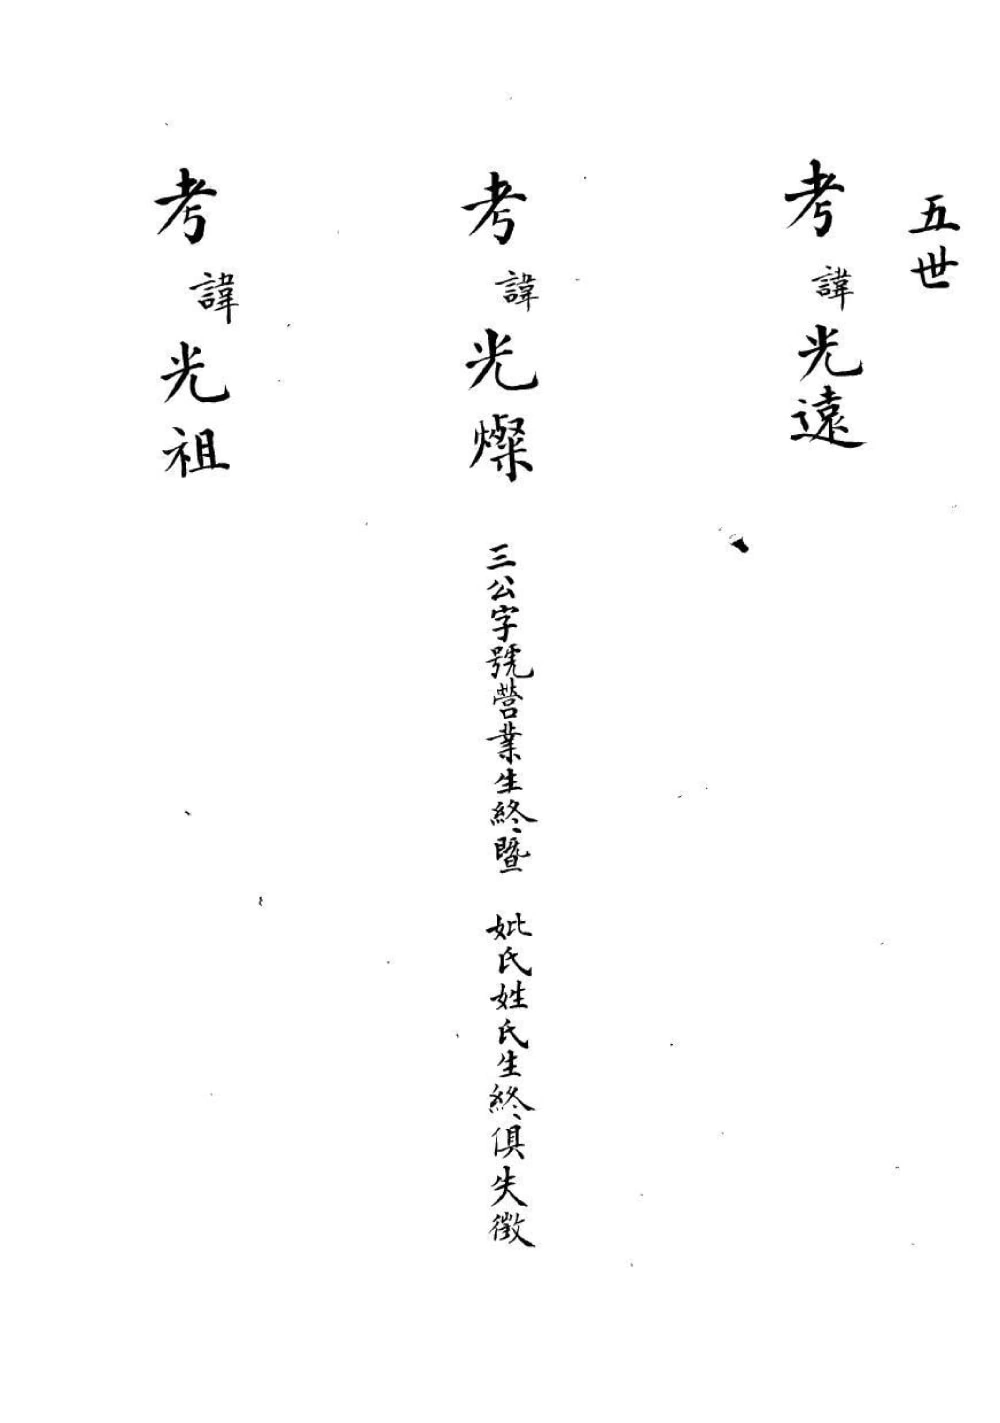 五世
考諱光遠
考諱光燦 三公字號營業生終暨 妣氏姓氏生終俱失徵
考諱光祖